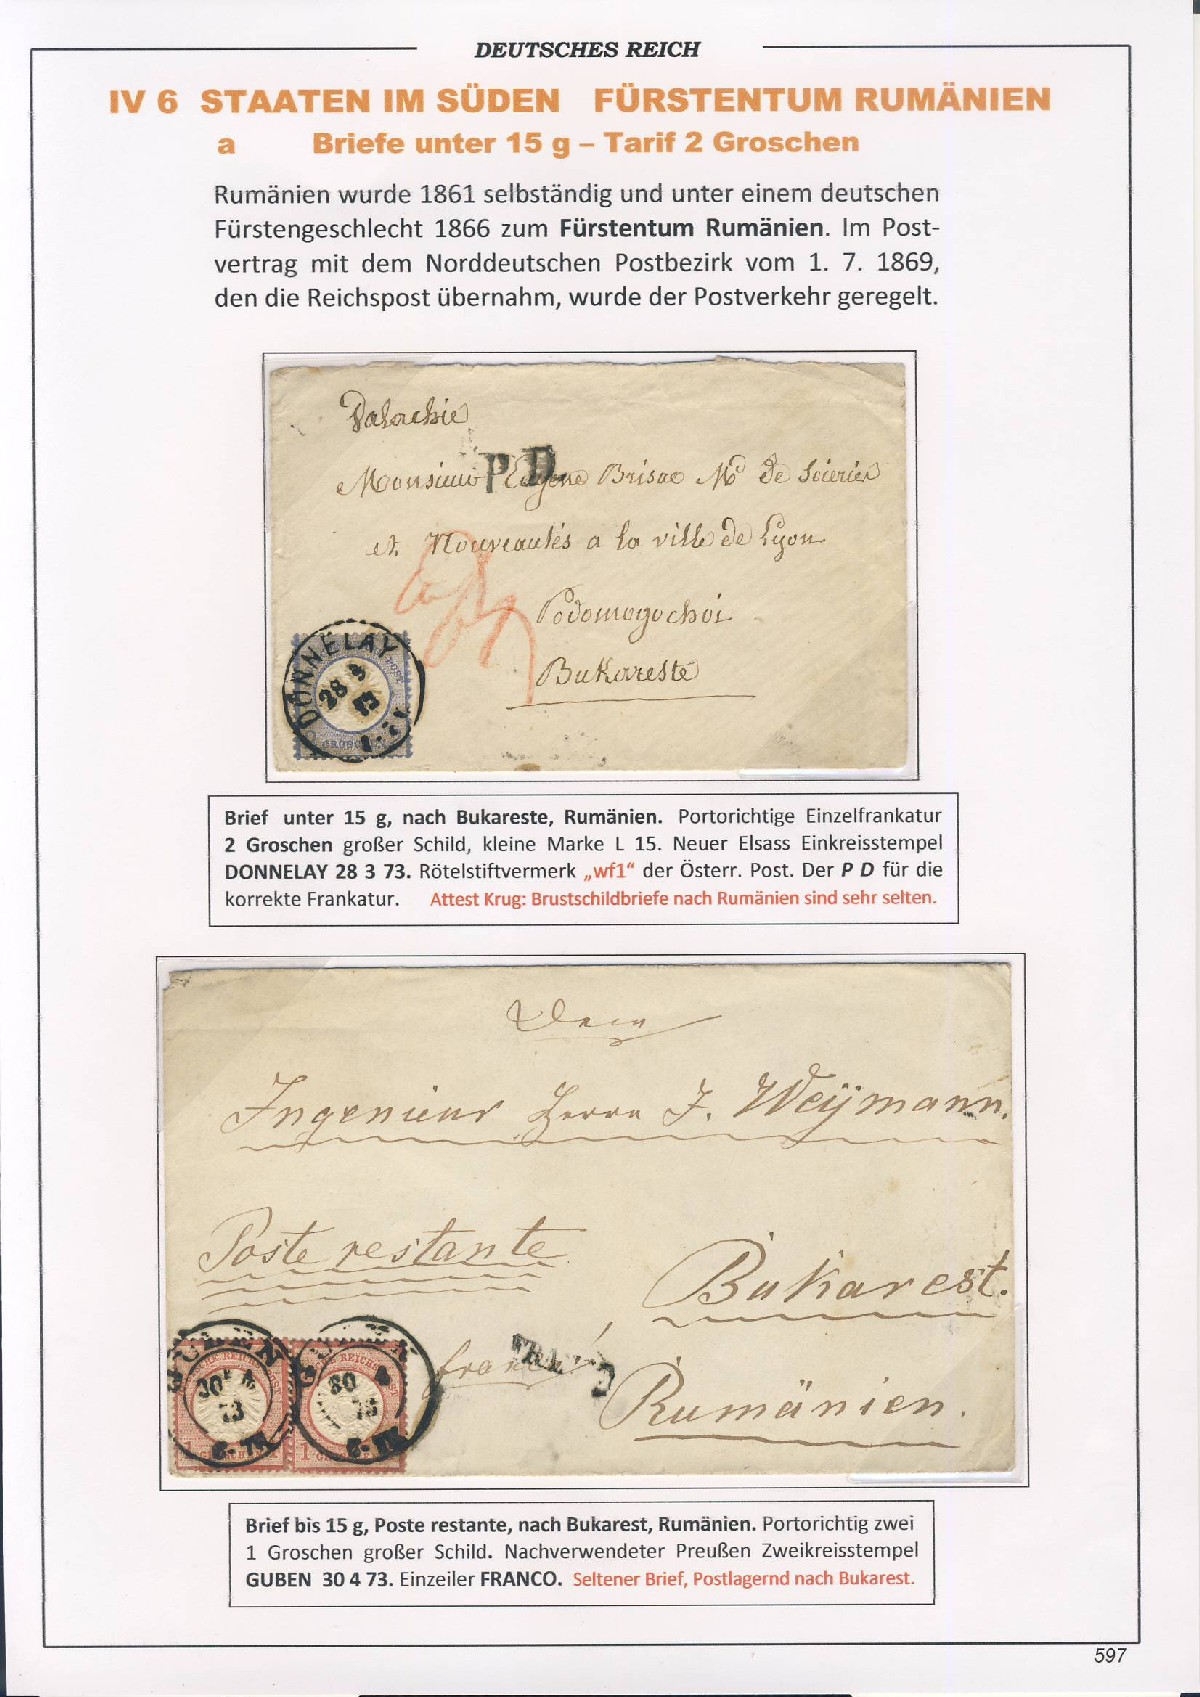 DEUTSCHES REICH
IV 6 STAATEN IM SÜDEN FÜRSTENTUM RUMÄNIEN
a Briefe unter 15 g – Tarif 2 Groschen
Rumänien wurde 1861 selbständig und unter einem deutschen
Fürstengeschlecht 1866 zum Fürstentum Rumänien. Im Post-
vertrag mit dem Norddeutschen Postbezirk vom 1. 7. 1869,
den die Reichspost übernahm, wurde der Postverkehr geregelt.
Valachie
P D
Monsieur Eugene Brisac Md de Soieries
et Nouveautés a la ville de Lyon
Podomogochoi
Bukareste
DONNELAY
28 3
73
Brief unter 15 g, nach Bukareste, Rumänien. Portorichtige Einzelfrankatur
2 Groschen großer Schild, kleine Marke L 15. Neuer Elsass Einkreisstempel
DONNELAY 28 3 73. Rötelstiftvermerk „wf1“ der Österr. Post. Der P D für die
korrekte Frankatur. Attest Krug: Brustschildbriefe nach Rumänien sind sehr selten.
Dem
Ingenieur Herrn J. Weÿmann.
Poste restante
Bukarest.
franco
Rumänien.
GUBEN
30 4
73
GUBEN
30 4
73
Brief bis 15 g, Poste restante, nach Bukarest, Rumänien. Portorichtig zwei
1 Groschen großer Schild. Nachverwendeter Preußen Zweikreisstempel
GUBEN 30 4 73. Einzeiler FRANCO. Seltener Brief, Postlagernd nach Bukarest.
597